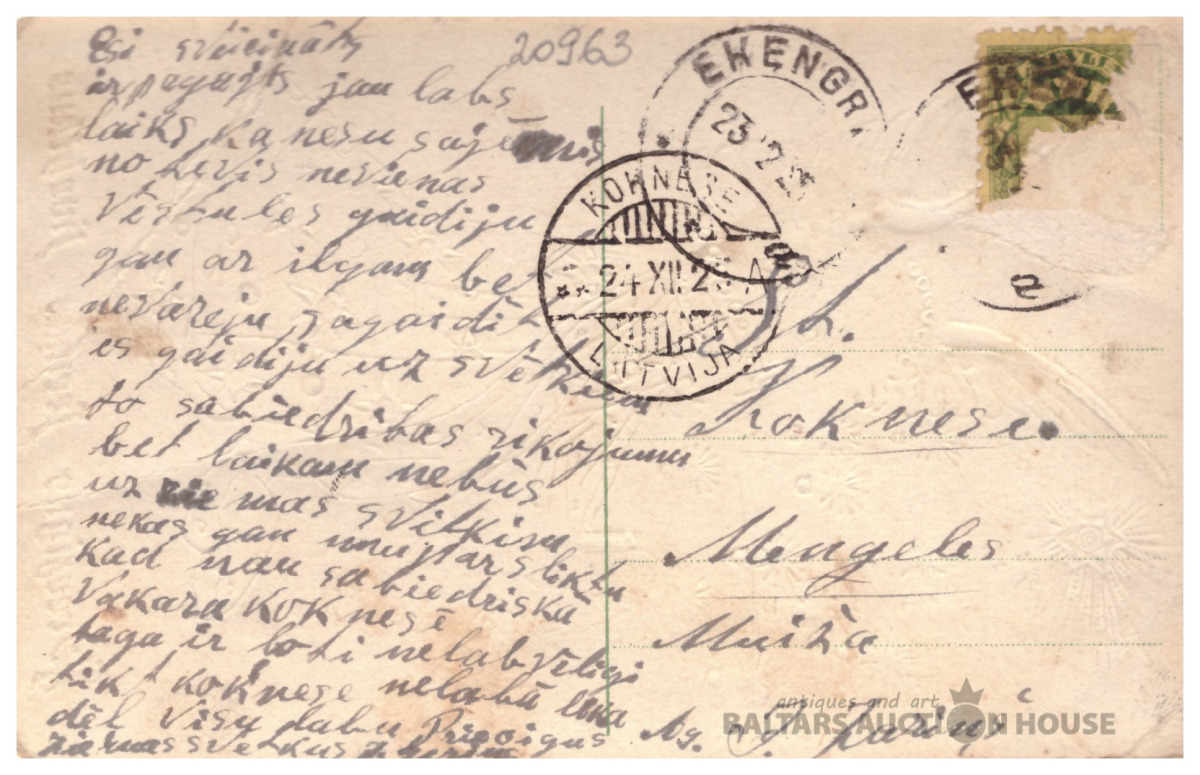 Esi sveicināts
ir pagajts jau labs
laiks ka nesu sajēmis
no tevis nevienas
vēstules gaidiju
gan ar ilgam bet
nevareju sagaidit
es gaidiju uz svētkiem
to sabiedribas rikojumu
bet laikam nebūs
uz ziemas svētkim
nekas gan
kad nau sabiedriskā
vakara koknesē
taga ir loti nelabvēligi
tikt koknese nelabā
dēļ Visu labu Precigus
ziemassvetkus
20963
EKENGR
23 12 25
KOKNESE
24 XII 25 A
LATVIJA
St.
Koknese.
Mengeles
Muiža
Ag. J.
antiques and art
BALTARS AUCTION HOUSE